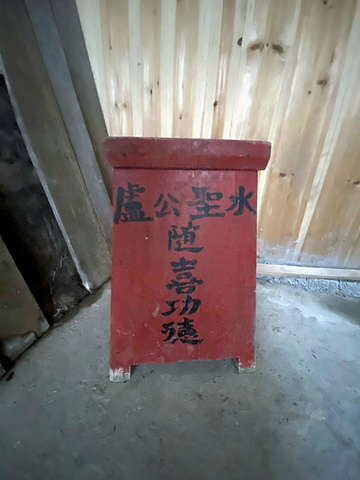 盧公聖水
随喜功德